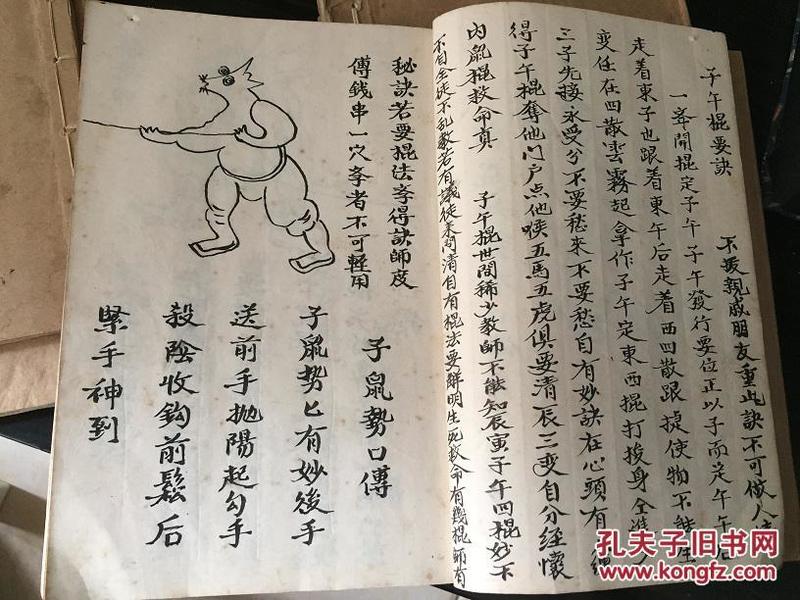 子午棍要訣
不授親戚朋友重此訣不可傚人
一夲開棍定子午子午發行要位正以子而定午午
走着東子也跟着東午后走着西四散跟捷使物不能
变任在四散雲霧起拿作子午定東西棍打挨身全
三子先接永受分不要愁來不要愁自有妙訣在心頭有
得子午棍奪他门户点他喉五馬五虎俱要清辰三变自分経懷
内鼠棍救命真
子午棍世間稀少教師不能知辰寅子午四棍妙不
不自全徒不乱教若有議徒来問清自有棍法要觧明生死救命有幾棍師有
秘訣若要棍法夲得訣師度
傳銭串一穴夲者不可輕用
子鼠勢口傳
子鼠勢匕有妙後手
送前手抛陽起勾手
殺陰收鈎前鬆后
緊手神到
孔夫子旧书网
www.kongfz.com